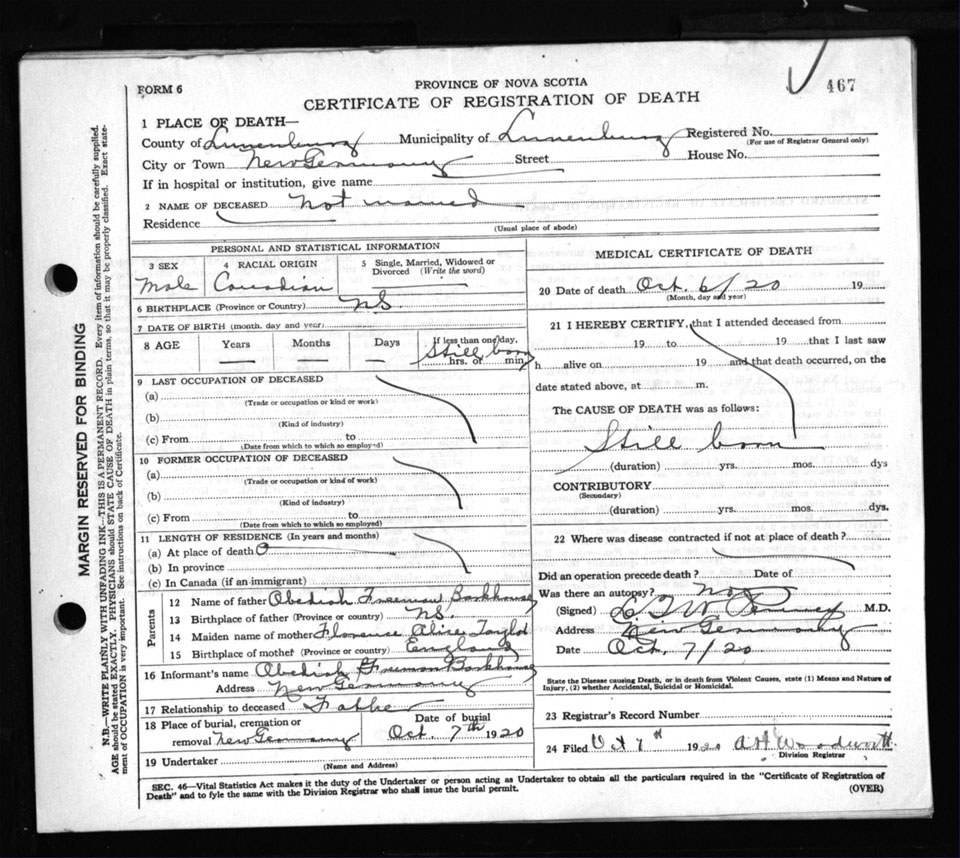 467
FORM 6
PROVINCE OF NOVA SCOTIA
CERTIFICATE OF REGISTRATION OF DEATH
1 PLACE OF DEATH—
County of Lunenburg Municipality of Lunenburg Registered No.
(For use of Registrar General only)
City or Town New Germany Street House No.
If in hospital or institution, give name
2 NAME OF DECEASED Not named
Residence
(Usual place of abode)
PERSONAL AND STATISTICAL INFORMATION
3 SEX 4 RACIAL ORIGIN 5 Single, Married, Widowed or Divorced (Write the word)
Male Canadian
6 BIRTHPLACE (Province or Country) N.S.
7 DATE OF BIRTH (month, day and year)
8 AGE Years Months Days If less than one day,
Still born
hrs. or min.
9 LAST OCCUPATION OF DECEASED
(a)
(Trade or occupation or kind or work)
(b)
(Kind of industry)
(c) From to
(Date from which to which so employed)
10 FORMER OCCUPATION OF DECEASED
(a)
(Trade or occupation or kind of work)
(b)
(Kind of industry)
(c) From to
(Date from which to which so employed)
11 LENGTH OF RESIDENCE (In years and months)
(a) At place of death 0
(b) In province
(c) In Canada (if an immigrant)
Parents
12 Name of father Obediah Freeman Barkhouse
13 Birthplace of father (Province or country) N.S.
14 Maiden name of mother Florence Alice Taylor
15 Birthplace of mother (Province or country) England
16 Informant's name Obediah Freeman Barkhouse
Address New Germany
17 Relationship to deceased Father
18 Place of burial, cremation or Date of burial
removal New Germany Oct. 7th 1920
19 Undertaker
(Name and Address)
MEDICAL CERTIFICATE OF DEATH
20 Date of death Oct. 6/20 19
(Month, day and year)
21 I HEREBY CERTIFY, that I attended deceased from
19 to 19 that I last saw
h alive on 19 and that death occurred, on the
date stated above, at m.
The CAUSE OF DEATH was as follows:
Still born
(duration) yrs. mos. dys
CONTRIBUTORY
(Secondary)
(duration) yrs. mos. dys.
22 Where was disease contracted if not at place of death?
Did an operation precede death? Date of
Was there an autopsy? No
(Signed) M.D.
Address New Germany
Date Oct. 7/20
State the Disease causing Death, or in death from Violent Causes, state (1) Means and Nature of
Injury, (2) whether Accidental, Suicidal or Homicidal.
23 Registrar's Record Number
24 Filed Oct 7th 1920 A H Woodworth
Division Registrar
SEC. 46—Vital Statistics Act makes it the duty of the Undertaker or person acting as Undertaker to obtain all the particulars required in the "Certificate of Registration of
Death" and to fyle the same with the Division Registrar who shall issue the burial permit. (OVER)
MARGIN RESERVED FOR BINDING
N.B.—WRITE PLAINLY WITH UNFADING INK—THIS IS A PERMANENT RECORD. Every item of information should be carefully supplied.
AGE should be stated EXACTLY. PHYSICIANS should STATE CAUSE OF DEATH in plain terms, so that it may be properly classified. Exact state-
ment of OCCUPATION is very important. See instructions on back of Certificate.